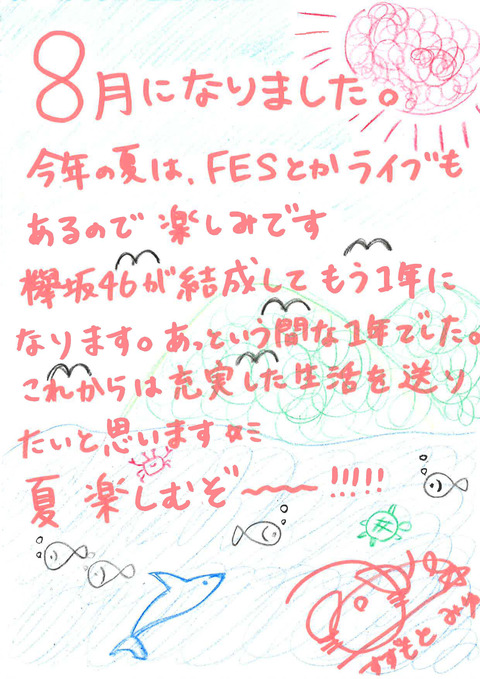 8月になりました。
今年の夏は、FESとかライブも
あるので楽しみです
欅坂46が結成してもう1年に
なります。あっという間な1年でした。
これからは充実した生活を送り
たいと思います
夏楽しむぞ〜〜!!!!!
すずもと みゆ